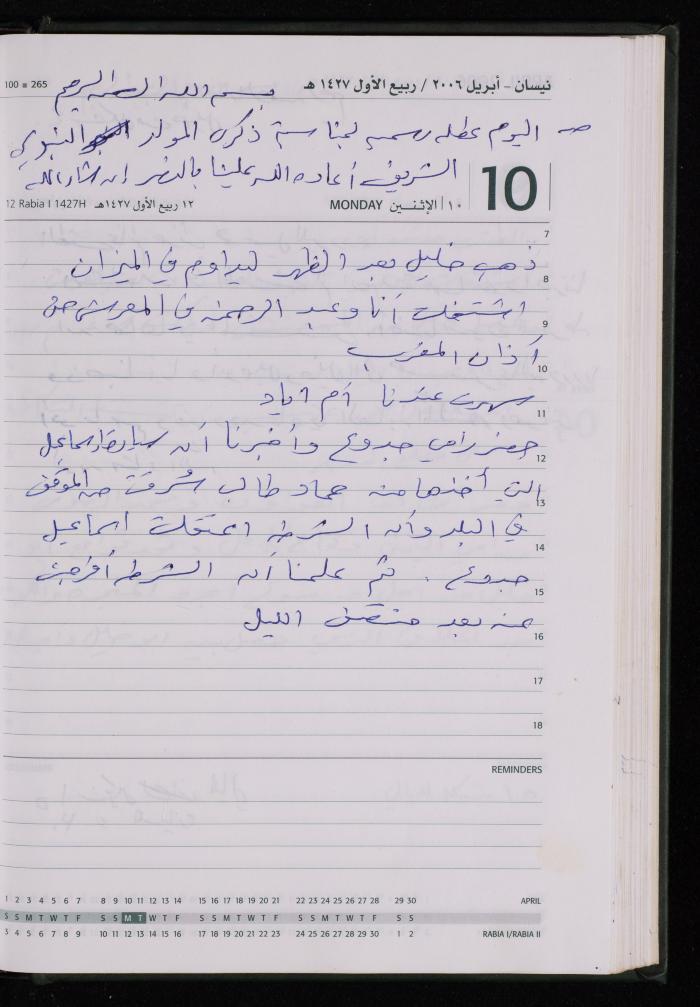 100 ▪ 265
نيسان - أبريل ٢٠٠٦ / ربيع الأول ١٤٢٧ هـ
بسم الله الرحمن الرحيم
اليوم عطله رسميه لمناسبة ذكرى المولد النبوي
الشريف أعاده الله علينا بالنصر إن شاء الله
12 Rabia I 1427H ١٢ ربيع الأول ١٤٢٧هـ MONDAY ١٠ | الإثنـيـن 10
7
ذهب خليل بعد الظهر ليداوم في الميزان
8
اشتغلت أنا وعبد الرحمن في المعرش حتى
9
أذان المغرب
10
سهرت عندنا أم اياد
11
حضر رامي جدوع وأخبرنا أن سيارة اسماعيل
12
التي أخذها منه عماد طالب سُرقت من الموقف
13
في البلد وأن الشرطه اعتقلت اسماعيل
14
جدوع . ثم علمنا أن الشرطه أفرجت
15
عنه بعد منتصف الليل
16
17
18
REMINDERS
1 2 3 4 5 6 7 8 9 10 11 12 13 14 15 16 17 18 19 20 21 22 23 24 25 26 27 28 29 30 APRIL
S S M T W T F S S M T W T F S S M T W T F S S M T W T F S S
3 4 5 6 7 8 9 10 11 12 13 14 15 16 17 18 19 20 21 22 23 24 25 26 27 28 29 30 1 2 RABIA I/RABIA II